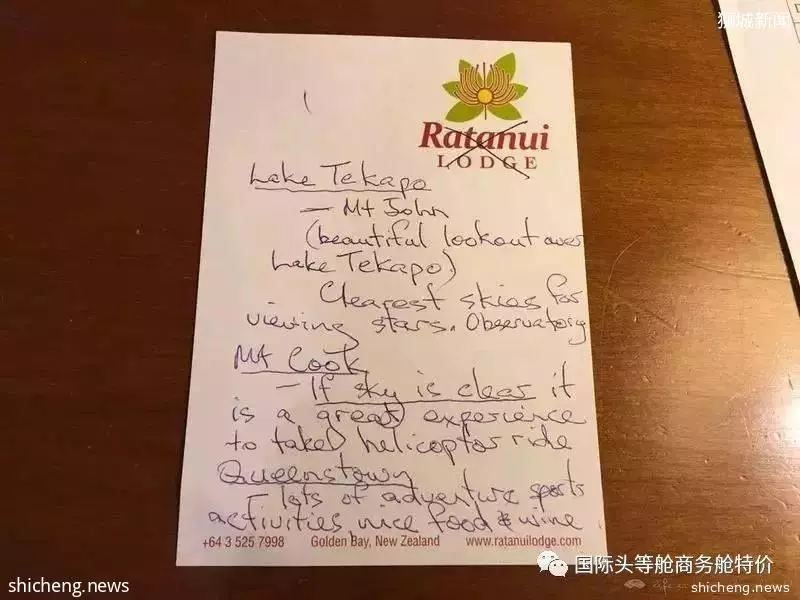 狮城新闻
Ratanui
LODGE
Lake Tekapo
- Mt John
(beautiful lookout over
Lake Tekapo)
Clearest skies for
viewing stars. Observatory
Mt Cook
- If sky is clear it
is a great experience
to take helicoptor ride
Queenstown
- lots of adventure sports
activities, nice food & wine
+64 3 525 7998 Golden Bay, New Zealand www.ratanuilodge.com
国际头等舱商务舱特价
shicheng.news
shicheng.news